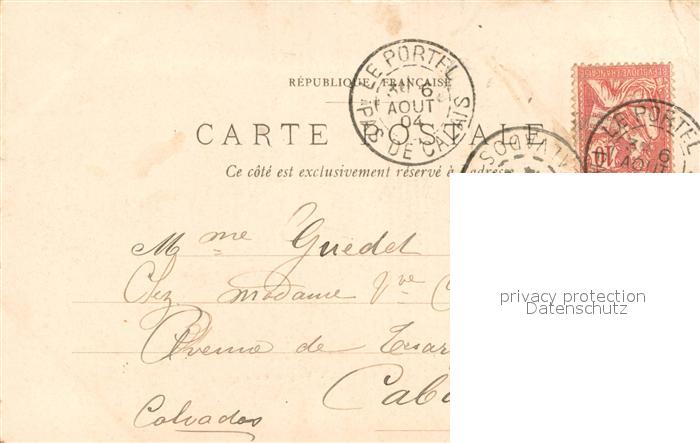 RÉPUBLIQUE FRANÇAISE
CARTE POSTALE
Ce côté est exclusivement réservé à l'adresse
LE PORTEL
6
AOUT
04
PAS DE CALAIS
LE PORTEL
6
AOUT
CALVADOS
Mme Guédel
Chez madame Vve
Avenue de
Cab
Calvados
privacy protection
Datenschutz